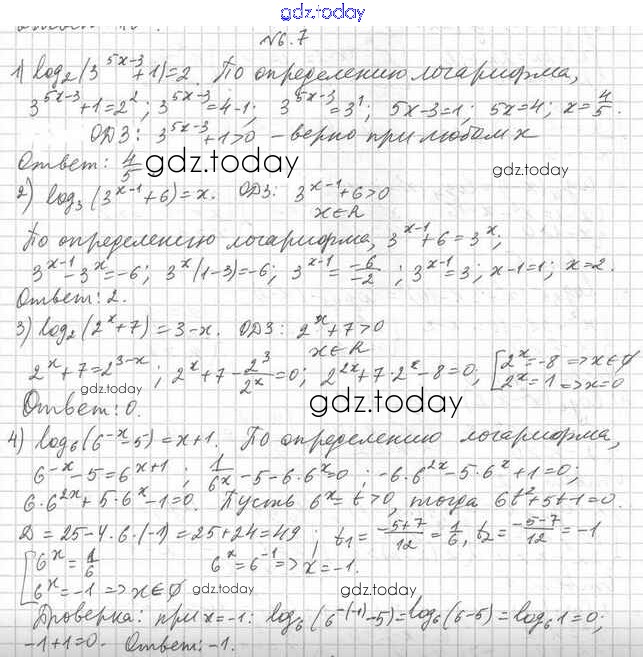 gdz.today
№6.7
1) log₂(3^(5x-3)+1)=2. По определению логарифма,
3^(5x-3)+1=2²; 3^(5x-3)=4-1; 3^(5x-3)=3¹; 5x-3=1; 5x=4; x=4/5.
ОДЗ: 3^(5x-3)+1>0 - верно при любом x
Ответ: 4/5
gdz.today
gdz.today
2) log₃(3^(x-1)+6)=x. ОДЗ: 3^(x-1)+6>0
x∈R
По определению логарифма, 3^(x-1)+6=3^x;
3^(x-1)-3^x=-6; 3^x(1-3)=-6; 3^(x-1)=-6/-2; 3^(x-1)=3; x-1=1; x=2.
Ответ: 2.
3) log₂(2^x+7)=3-x. ОДЗ: 2^x+7>0
x∈R
2^x+7=2^(3-x); 2^x+7-2³/2^x=0; 2^(2x)+7·2^x-8=0; [2^x=-8 => x∈∅
2^x=1 => x=0
gdz.today
Ответ: 0.
gdz.today
4) log₆(6^(-x)-5)=x+1. По определению логарифма,
6^(-x)-5=6^(x+1); 1/6^x-5-6·6^x=0; -6·6^(2x)-5·6^x+1=0;
6·6^(2x)+5·6^x-1=0. Пусть 6^x=t>0, тогда 6t²+5t-1=0.
D=25-4·6·(-1)=25+24=49; t₁=(-5+7)/12=1/6, t₂=(-5-7)/12=-1
[6^x=1/6 6^x=6^(-1) => x=-1.
6^x=-1 => x∈∅
gdz.today
gdz.today
Проверка: при x=-1: log₆(6^(-(-1))-5)=log₆(6-5)=log₆1=0;
-1+1=0. Ответ: -1.